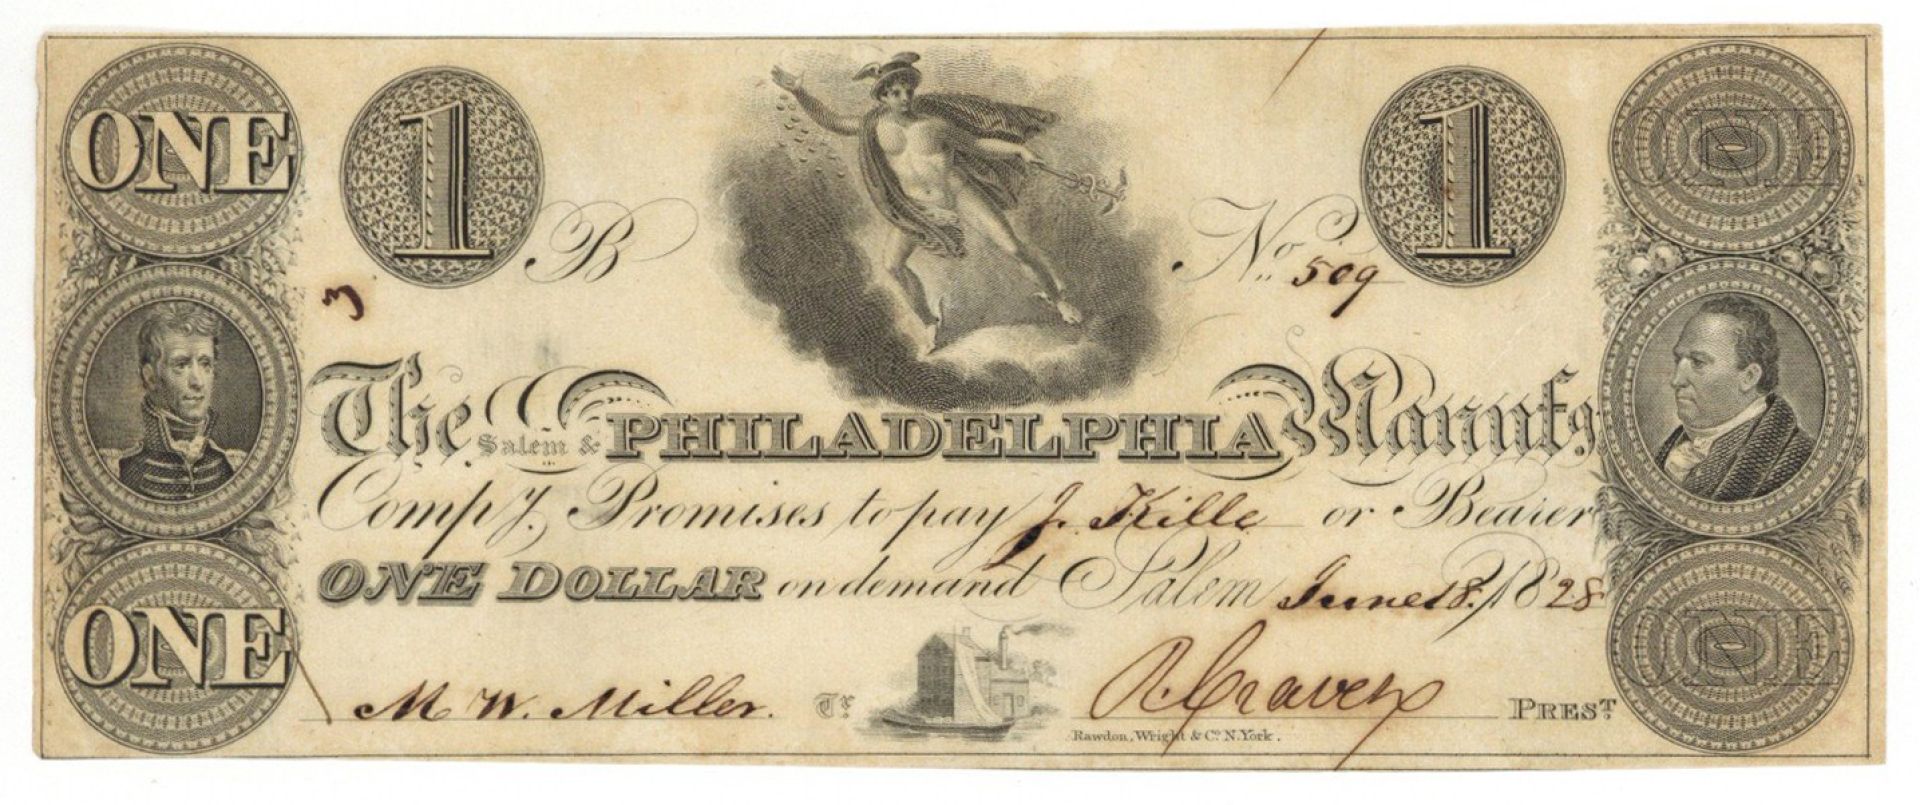 ONE 1 1 ONE
B No. 509
3
The Salem & PHILADELPHIA Manufg.
Compy. Promises to pay J. Kille or Bearer
ONE DOLLAR on demand Salem June 18. 1828
ONE ONE
M. W. Miller. Tr. R Craven PREST.
Rawdon, Wright & Co. N. York.